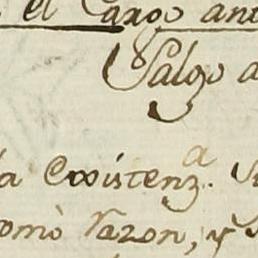 el Cargo ant
Salgo a
a Existenz.ª S
omò razon, y